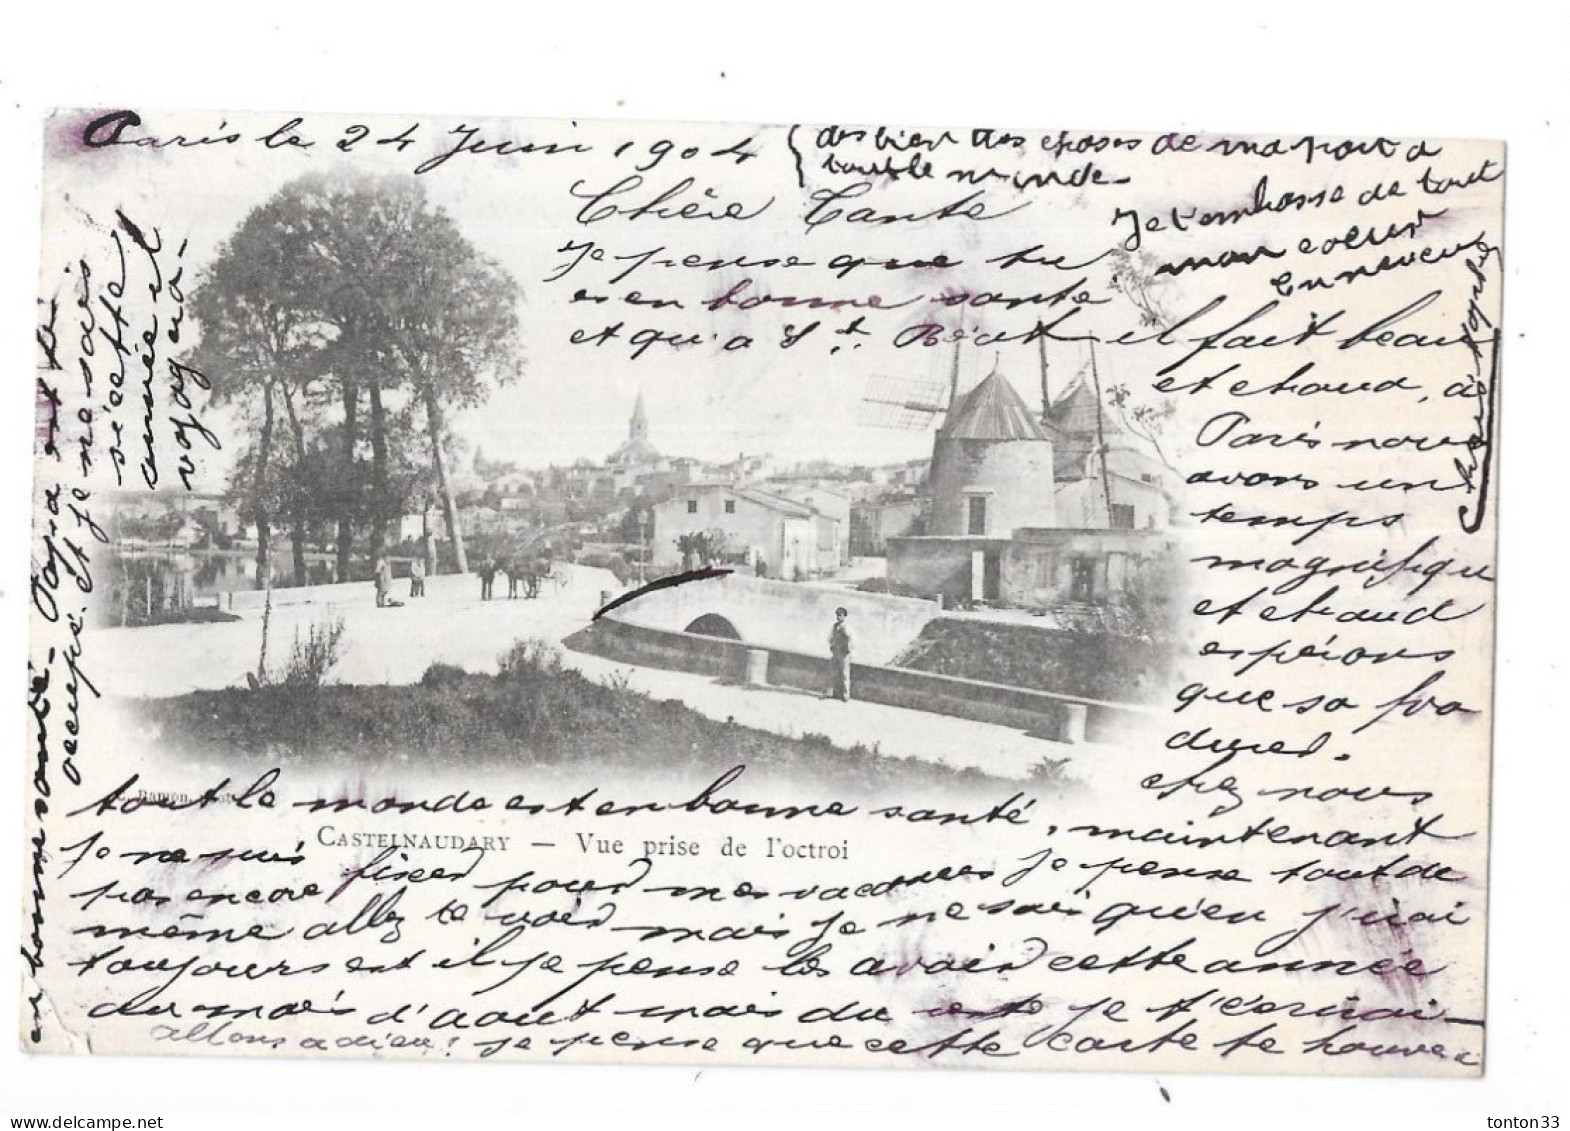 Paris le 24 Juin 1904
Chère Tante
Je pense que tu
es en bonne sante
et qu'a St. Béat il fait beau
et chaud, à
Paris nous
avons un
temps
magnifique
et chaud
espérons
que sa pro
duire.
chez nous
tout le monde est en bonne santé, maintenant
je ne suis
pas encore fixer pour mes vacances je pense tout de
même aller te voir mais je ne sais qu'en j'irai
toujours est il je pense les avoir cette année
au mois d'aout mais du je t'écrirai -
allons adieu! je pense que cette carte te trouvera
en bonne santé - Papa est très
occupé. Et je ne sais
si cette
année il
voyera -
des bien des choses de ma part a
tout le monde -
Je t'embrasse de tout
mon coeur
ton neveu
CASTELNAUDARY — Vue prise de l'octroi
tonton33